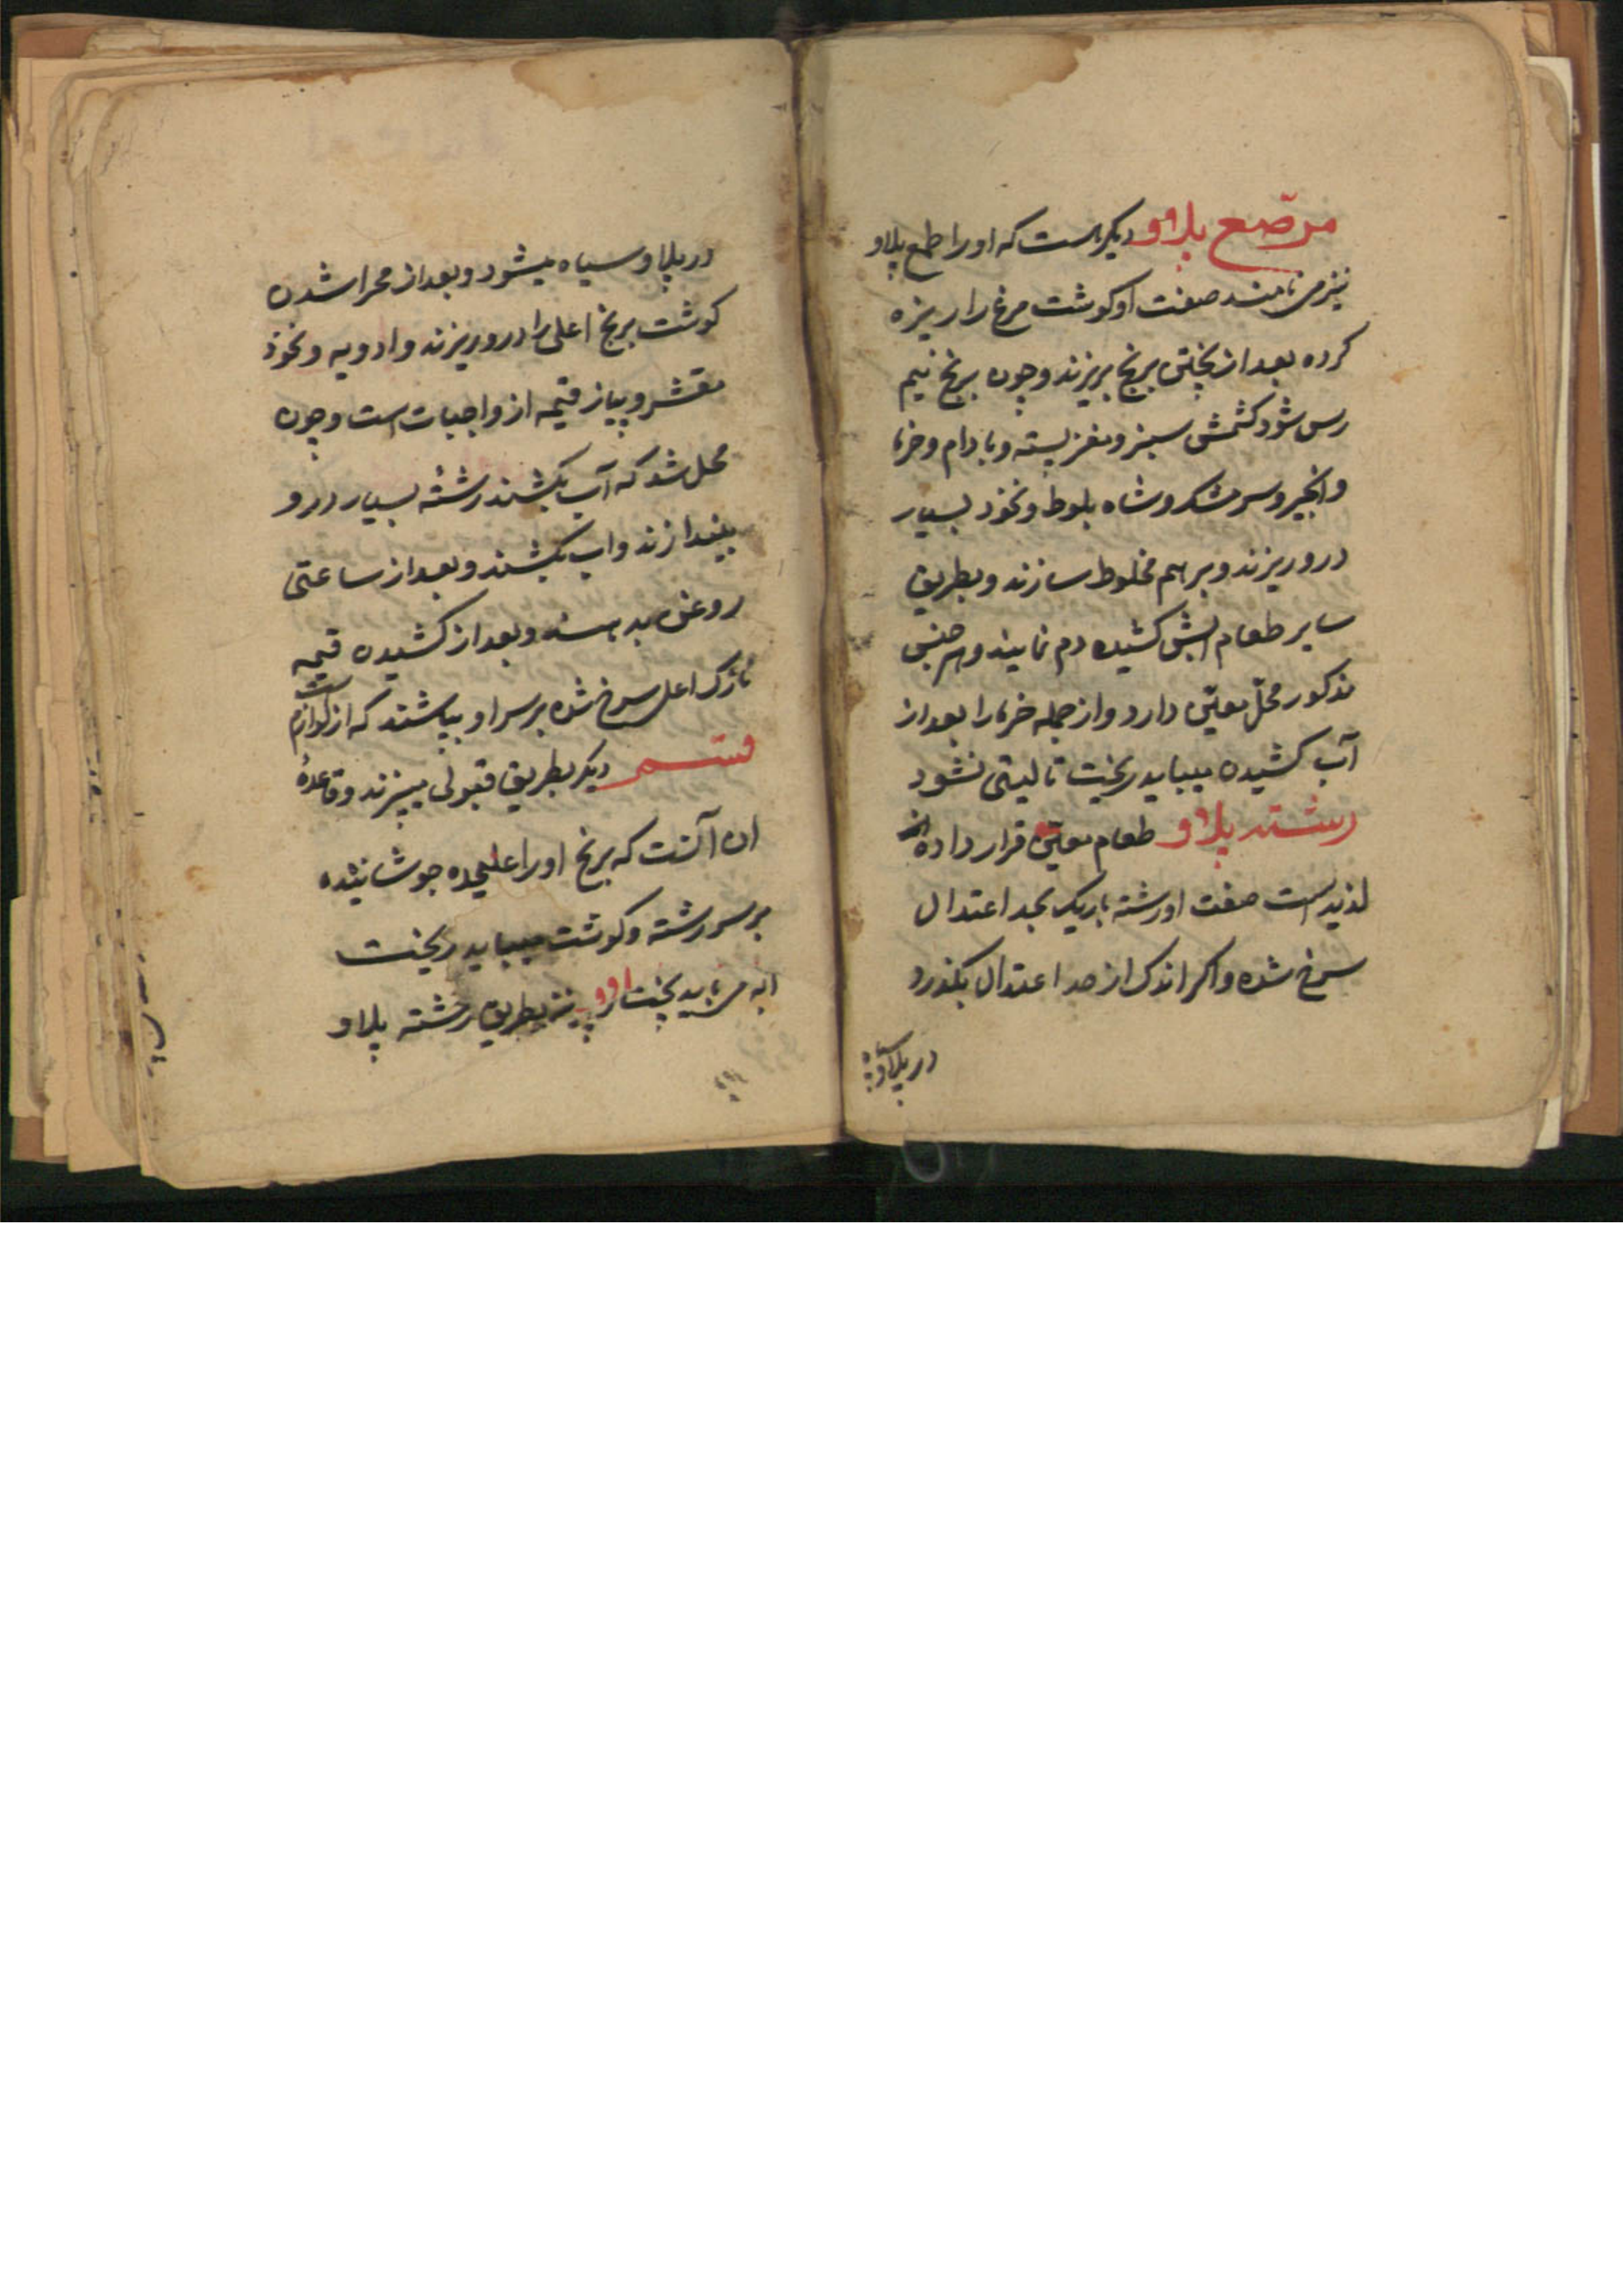 مرصّع پلاو دیکر است که او را طمع پلاو
نیز می نامند صفت او کوشت مرغ را ریزه
کرده بعد از پختن برنج بریزند و چون برنج نیم
رس شود کشمش سبز و مغز پسته و بادام و خرما
و انجیر و سرمشک و شاه بلوط و نخود بسیار
درو ریزند و بر هم مخلوط سازند و بطریق
سایر طعام ابش کشیده دم نمایند و هر جنس
مذکور محلّ معیّن دارد و از جمله خرما را بعد از
آب کشیدن میباید ریخت تا لیتی نشود
رشته پلاو طعام معیّن قرار داده
لذیذ است صفت او رشته باریک بحد اعتدال
سرخ شده و اکر اندک از حد اعتدال بکذرد
در پلاو سیاه
در پلاو سیاه میشود و بعد از محرا شدن
کوشت برنج اعلی را درو ریزند و ادویه و نخود
مقشر و پیاز قیمه از واجبات است و چون
محل شد که آب بکشند رشته بسیار درو
بیندازند و اب بکشند و بعد از ساعتی
روغن بدهند و بعد از کشیدن قیمه
نازک اعلی سرخ شده بر سر او بپاشند که از لوازم است
قسم دیکر بطریق قبولی میپزند و قاعدهٔ
ان آنست که برنج او را علیحده جوشانیده
بر سر رشته و کوشت میباید ریخت
نیز بطریق رشته پلاو